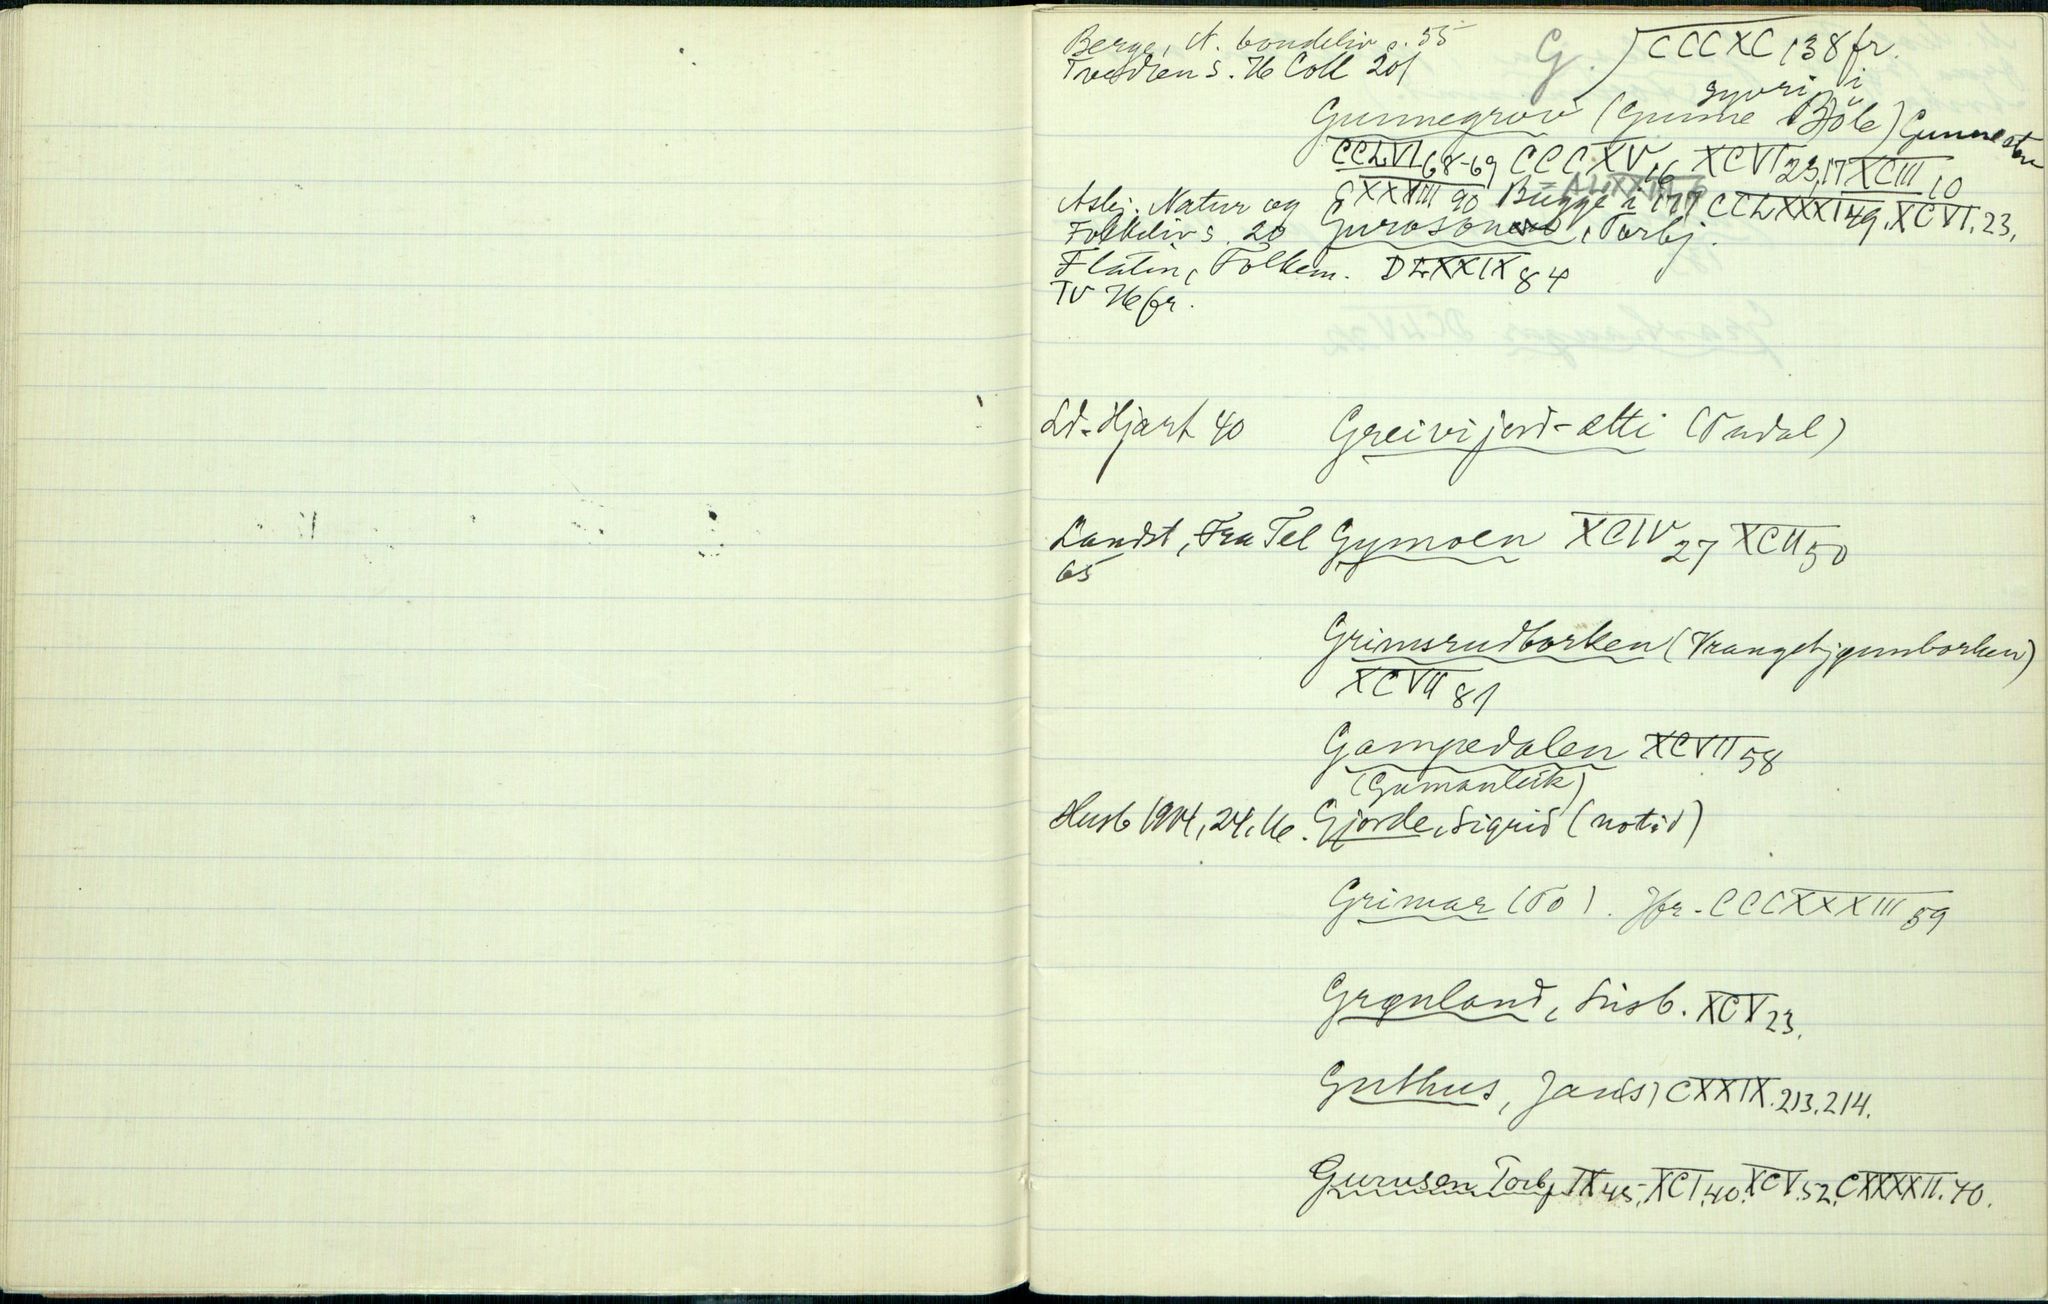 Berge, N. bondeliv s. 55
G. ) CCCXC 138 fr.
s. H Coll 201
Gyvri i
Gunnegrovi (Gunne Bøle) Gunnesteu
CCLVI 68-69 CCCXV 16 XCVI 23, 17 XCIII 10
Asbj. Natur og CXXXVIII 90 Bugge i 177 CCLXXXI 49. XCVI. 23.
Folkeliv s. 20 Gurosonen, Torbj.
Flatin, Folkem. DLXXIX 84
IV H fr.
Ld. Hjart 40 Greivijord-ætti (Tudal)
Landst, Fra Tel Gymoen XCIV 27 XCII 50
65
Grimsrudborken (Vrangebjønnborken)
XCVII 81
Gampedalen XCVII 58
(Gamanleik)
Husb 1904, 24, 16. Gjorde, Sigrid (notid)
Grimar (To). Jfr. CCCXXXIII 59
Grønland, Lisb. XCV 23.
Guthus, Jan(s) CXXIX. 213. 214.
Gurusen Torbj IX 45. XCI. 40. XCV. 52. CXXXXII. 70.